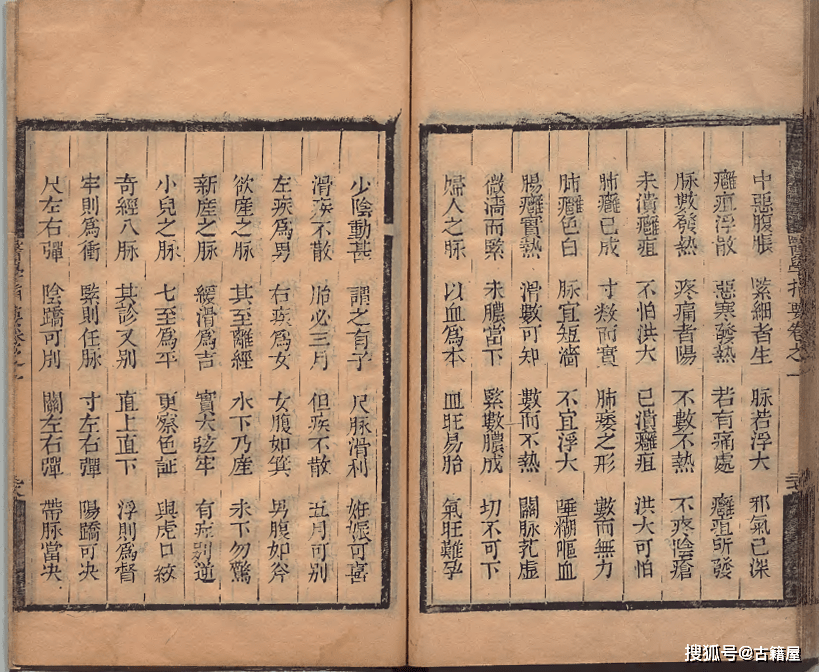 中惡腹脹 緊細者生 脉若浮大 邪氣已深
癰疽浮散 惡寒發熱 若有痛處 癰疽所發
脉數發熱 疼痛者陽 不數不熱 不疼陰瘡
未潰癰疽 不怕洪大 已潰癰疽 洪大可怕
肺癰已成 寸數而實 肺痿之形 數而無力
肺癰色白 脉宜短濇 不宜浮大 唾糊嘔血
腸癰實熱 滑數可知 數而不熱 關脉芤虛
微濇而緊 未膿當下 緊數膿成 切不可下
婦人之脉 以血爲本 血旺易胎 氣旺難孕
少陰動甚 謂之有子 尺脉滑利 妊娠可喜
滑疾不散 胎必三月 但疾不散 五月可別
左疾爲男 右疾爲女 女腹如箕 男腹如斧
欲產之脉 其至離經 水下乃產 未下勿驚
新產之脉 緩滑爲吉 實大弦牢 有症則逆
小兒之脉 七至爲平 更察色証 與虎口紋
奇經八脉 其診又別 直上直下 浮則爲督
牢則爲衝 緊則任脉 寸左右彈 陽蹻可决
尺左右彈 陰蹻可別 關左右彈 帶脉當决
醫學指要卷之一
搜狐号@古籍屋